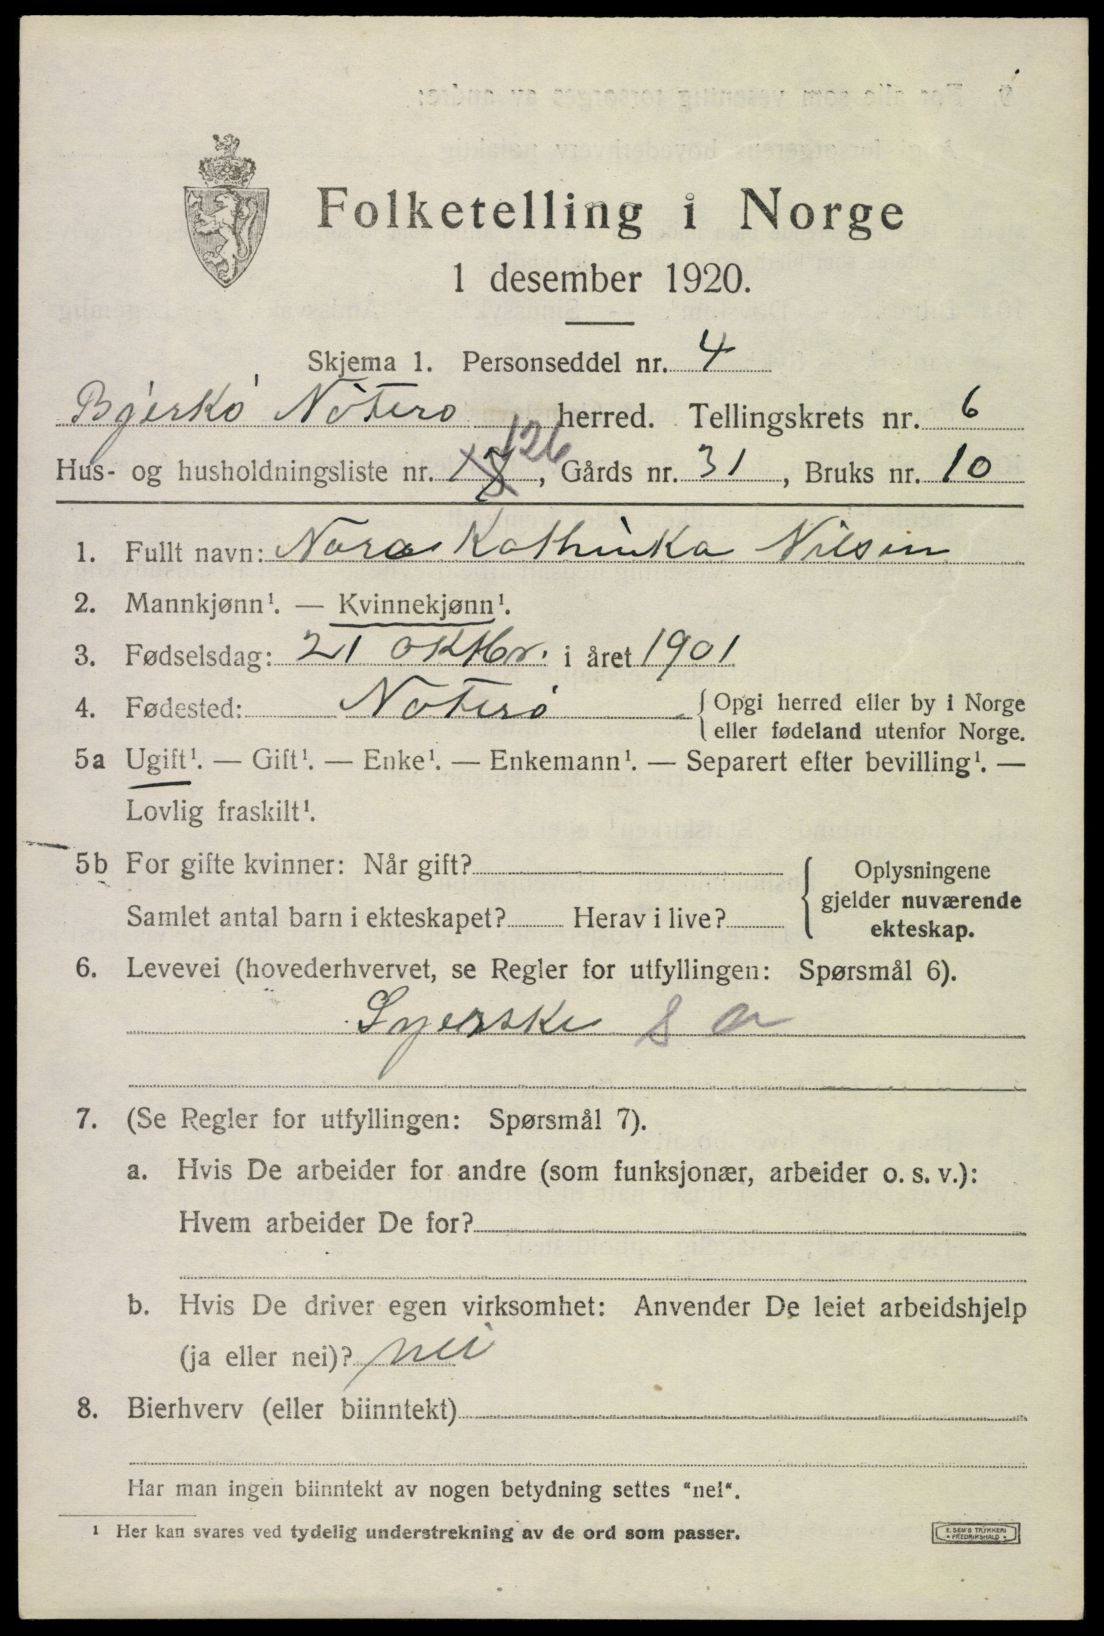 Folketelling i Norge
1 desember 1920.
Skjema 1. Personseddel nr. 4
Bjerkø Nøterø herred. Tellingskrets nr. 6
Hus- og husholdningsliste nr. 126, Gårds nr. 31, Bruks nr. 10
1. Fullt navn: Nora Kathinka Nilsen
2. Mannkjønn¹. — Kvinnekjønn¹.
3. Fødselsdag: 21 oktbr. i året 1901
4. Fødested: Nøterø { Opgi herred eller by i Norge
eller fødeland utenfor Norge.
5a Ugift¹. — Gift¹. — Enke¹. — Enkemann¹. — Separert efter bevilling¹. —
Lovlig fraskilt¹.
5b For gifte kvinner: Når gift?
Samlet antal barn i ekteskapet? Herav i live?
{ Oplysningene
gjelder nuværende
ekteskap.
6. Levevei (hovederhvervet, se Regler for utfyllingen: Spørsmål 6).
Syerske s a
7. (Se Regler for utfyllingen: Spørsmål 7).
a. Hvis De arbeider for andre (som funksjonær, arbeider o. s. v.):
Hvem arbeider De for?
b. Hvis De driver egen virksomhet: Anvender De leiet arbeidshjelp
(ja eller nei)? nei
8. Bierhverv (eller biinntekt)
Har man ingen biinntekt av nogen betydning settes "nei".
¹ Her kan svares ved tydelig understrekning av de ord som passer.
E. SEM'S TRYKKERI
FREDRIKSHALD